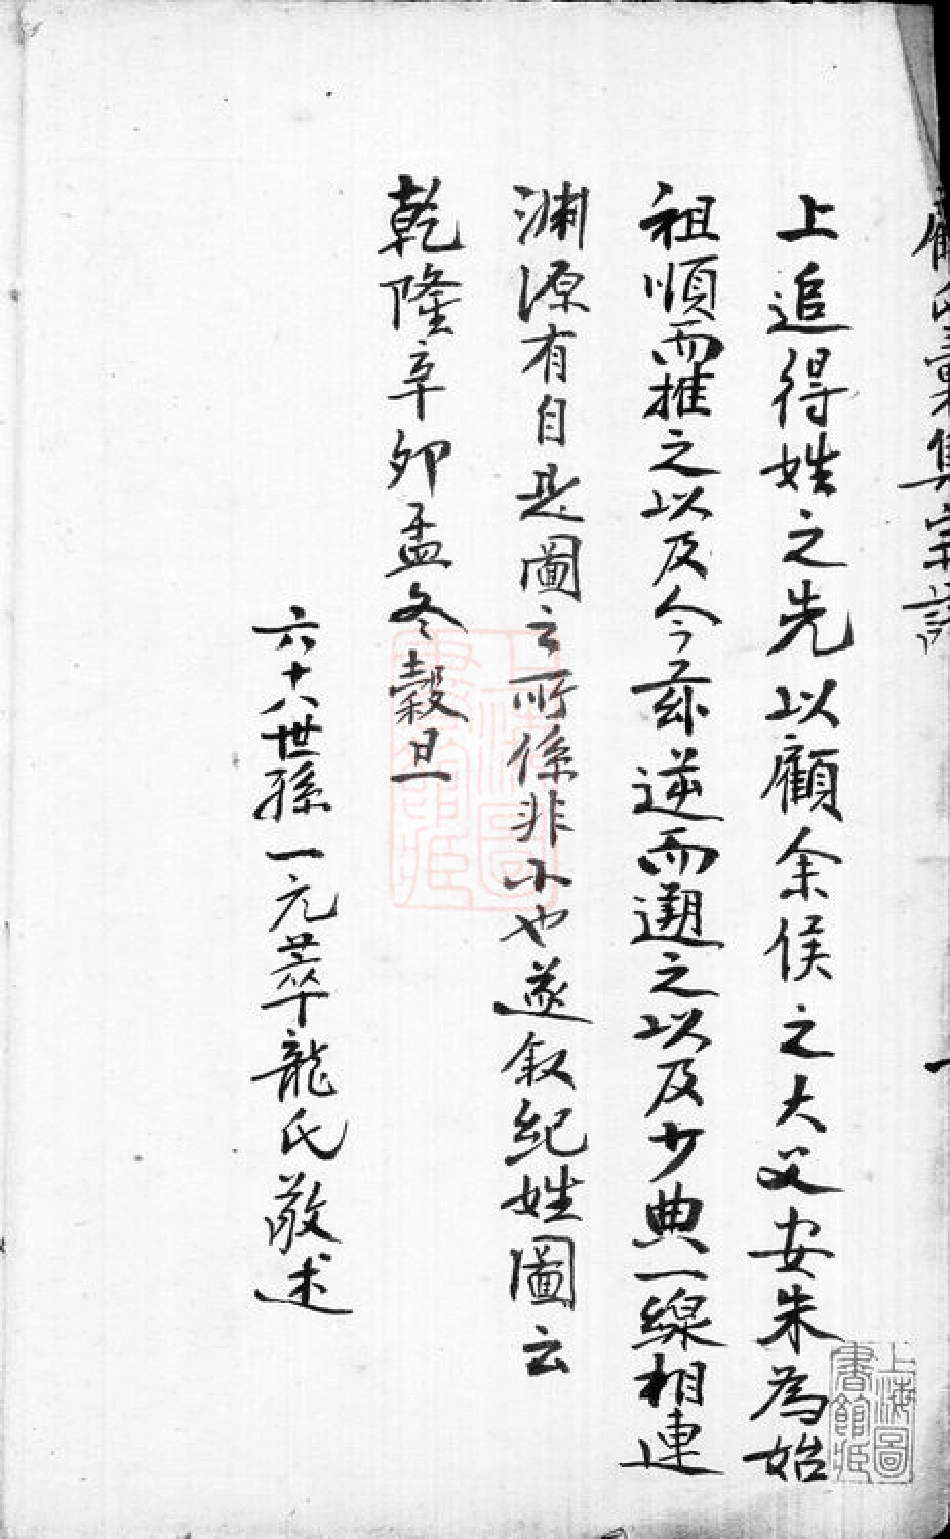 顧氏彙集宗譜
一
上追得姓之先以顧余侯之大父安朱為始
祖順而推之以及今茲逆而遡之以及少典一線相連
淵源有自是圖之所係非小也遂叙紀姓圖云
乾隆辛卯孟冬穀旦
六十八世孫一元萃龍氏敬述
上海圖書館藏
上海圖書館藏